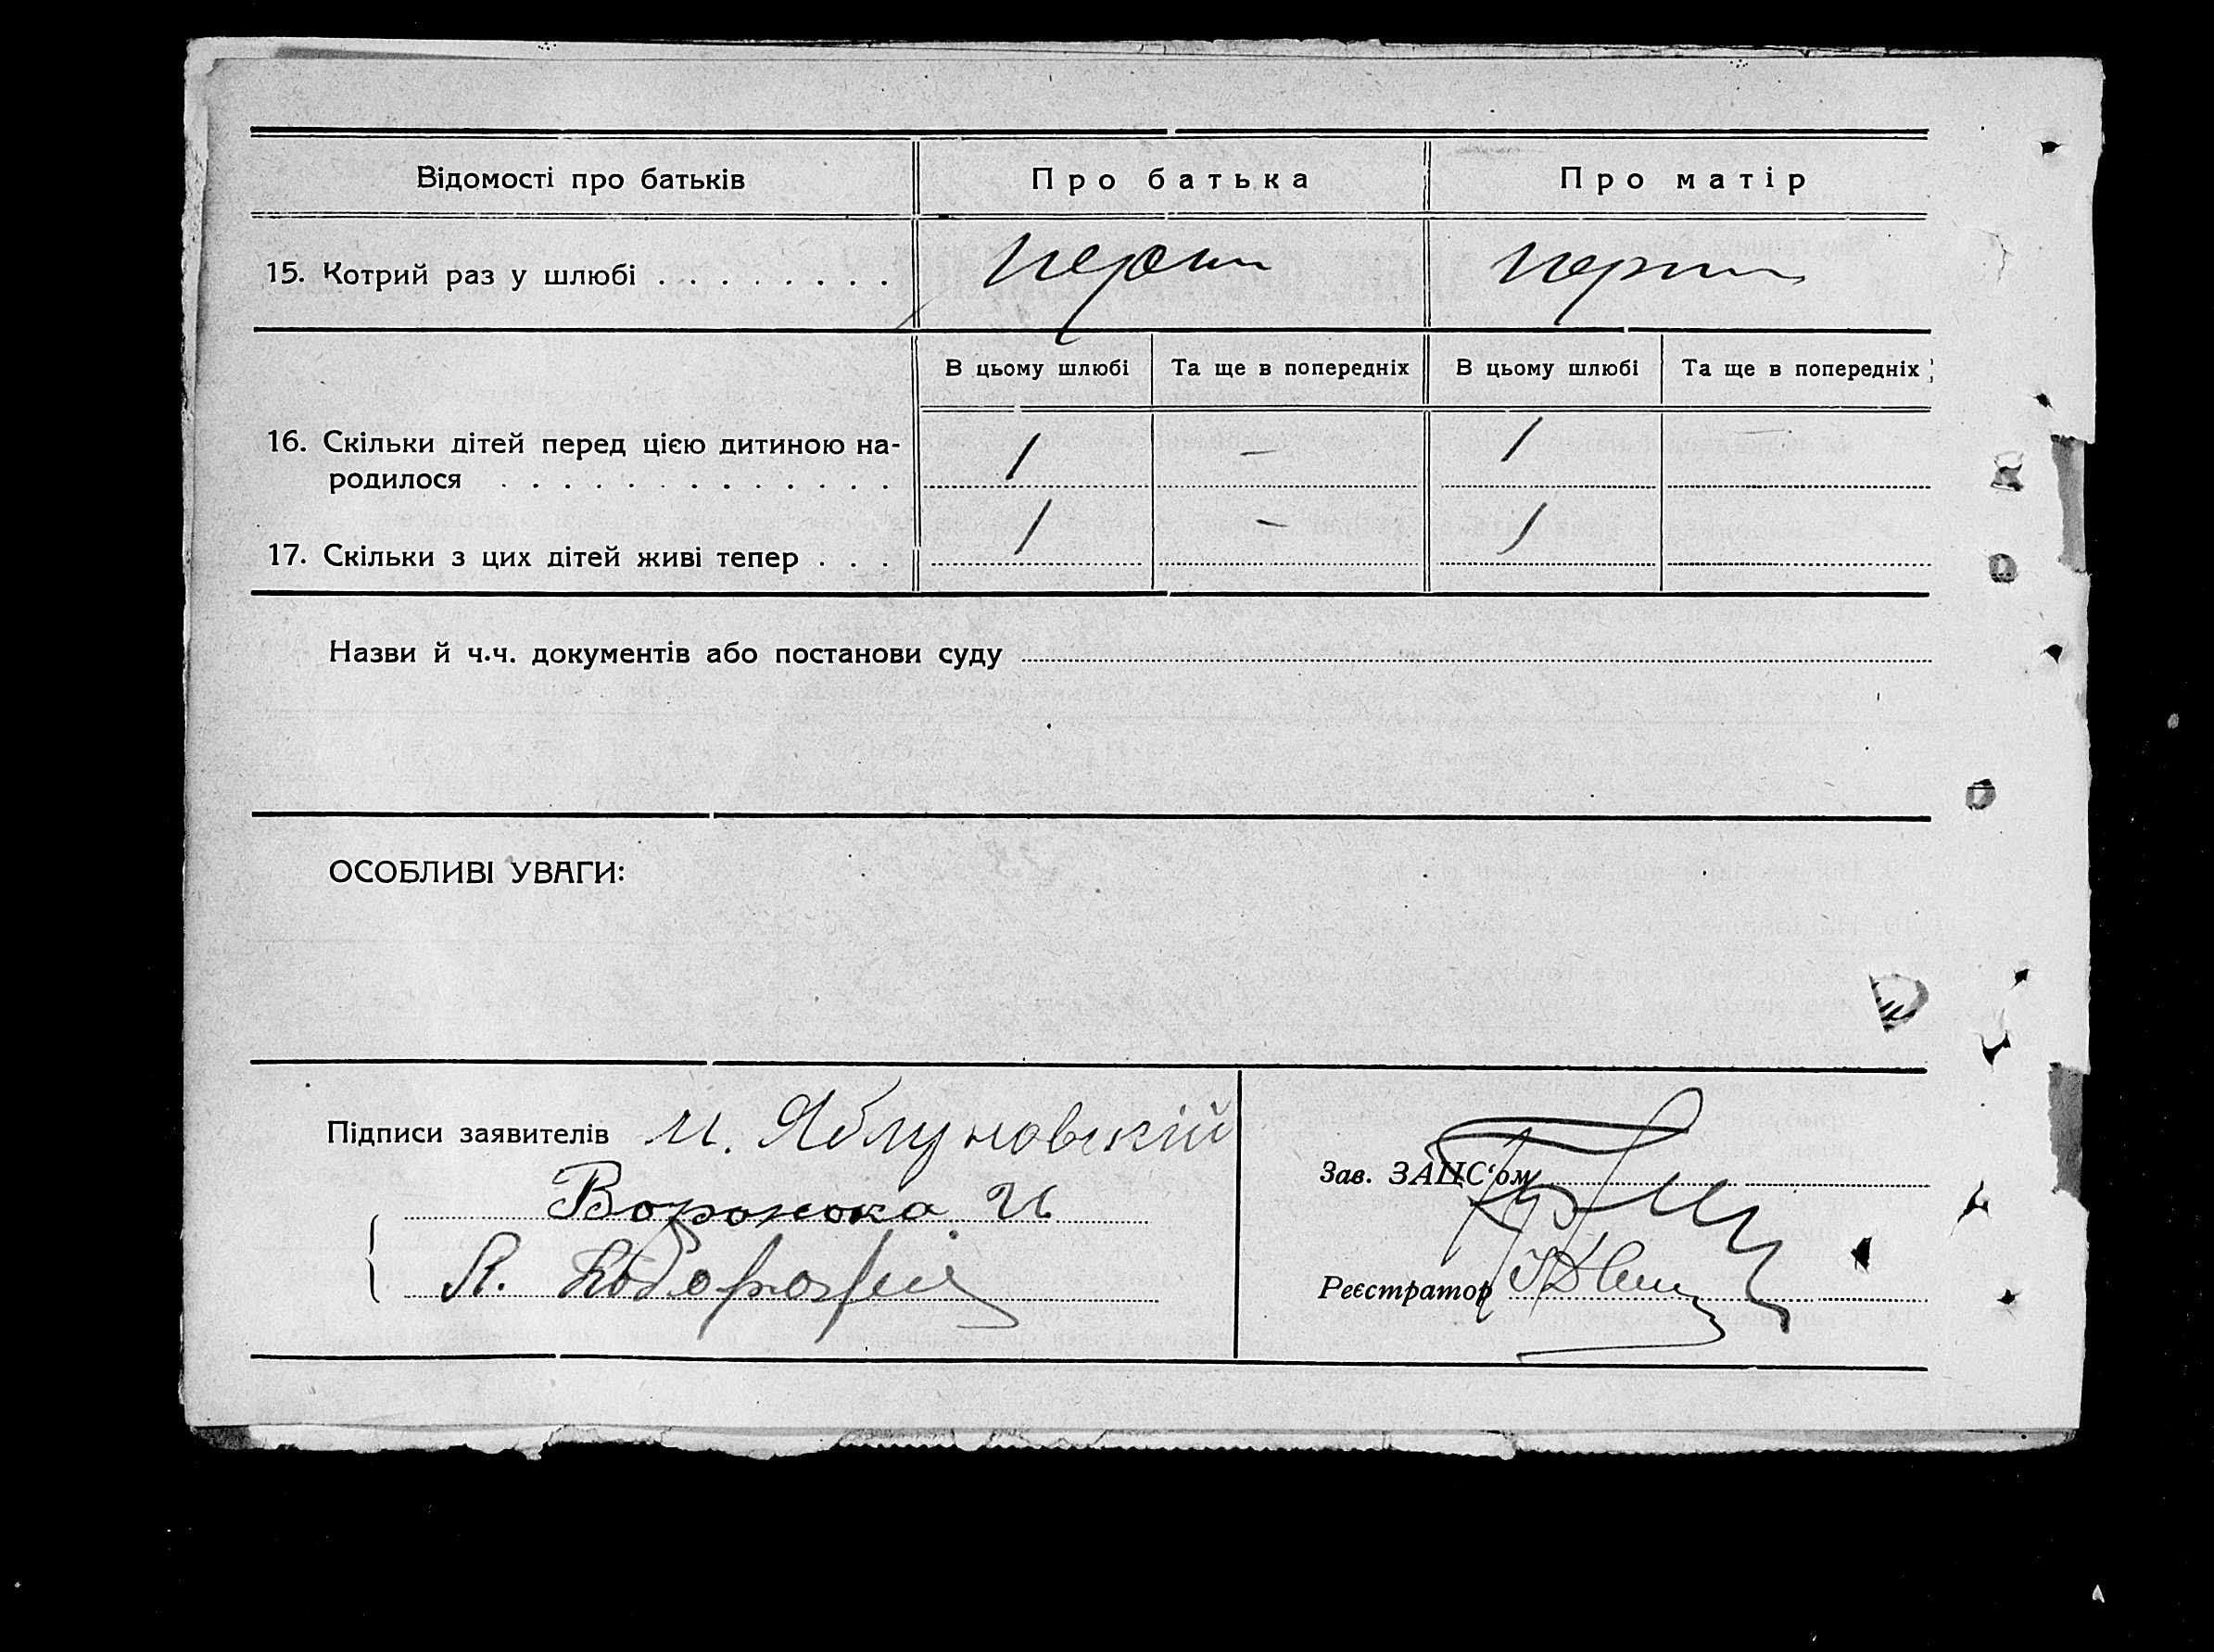 Відомості про батьків
Про батька
Про матір
15. Котрий раз у шлюбі . . . . . . . .
В цьому шлюбі
Та ще в попередніх
В цьому шлюбі
Та ще в попередніх
16. Скільки дітей перед цією дитиною на-
родилося . . . . . . . . . . . . .
1 - 1 -
17. Скільки з цих дітей живі тепер . . .
1 - 1
Назви й ч.ч. документів або постанови суду
ОСОБЛИВІ УВАГИ:
Підписи заявителів М. Яблуновскій
Воронока И
Зав. ЗАЦС'ом
Реєстратор